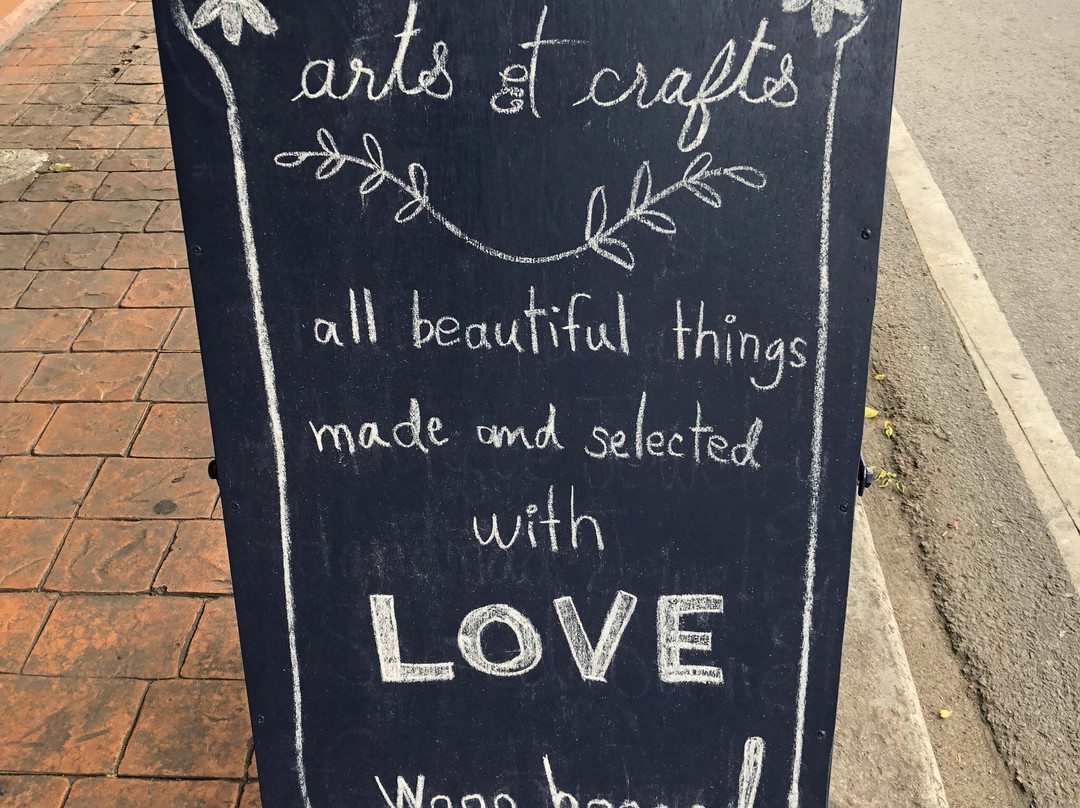 arts et crafts
all beautiful things
made and selected
with
LOVE